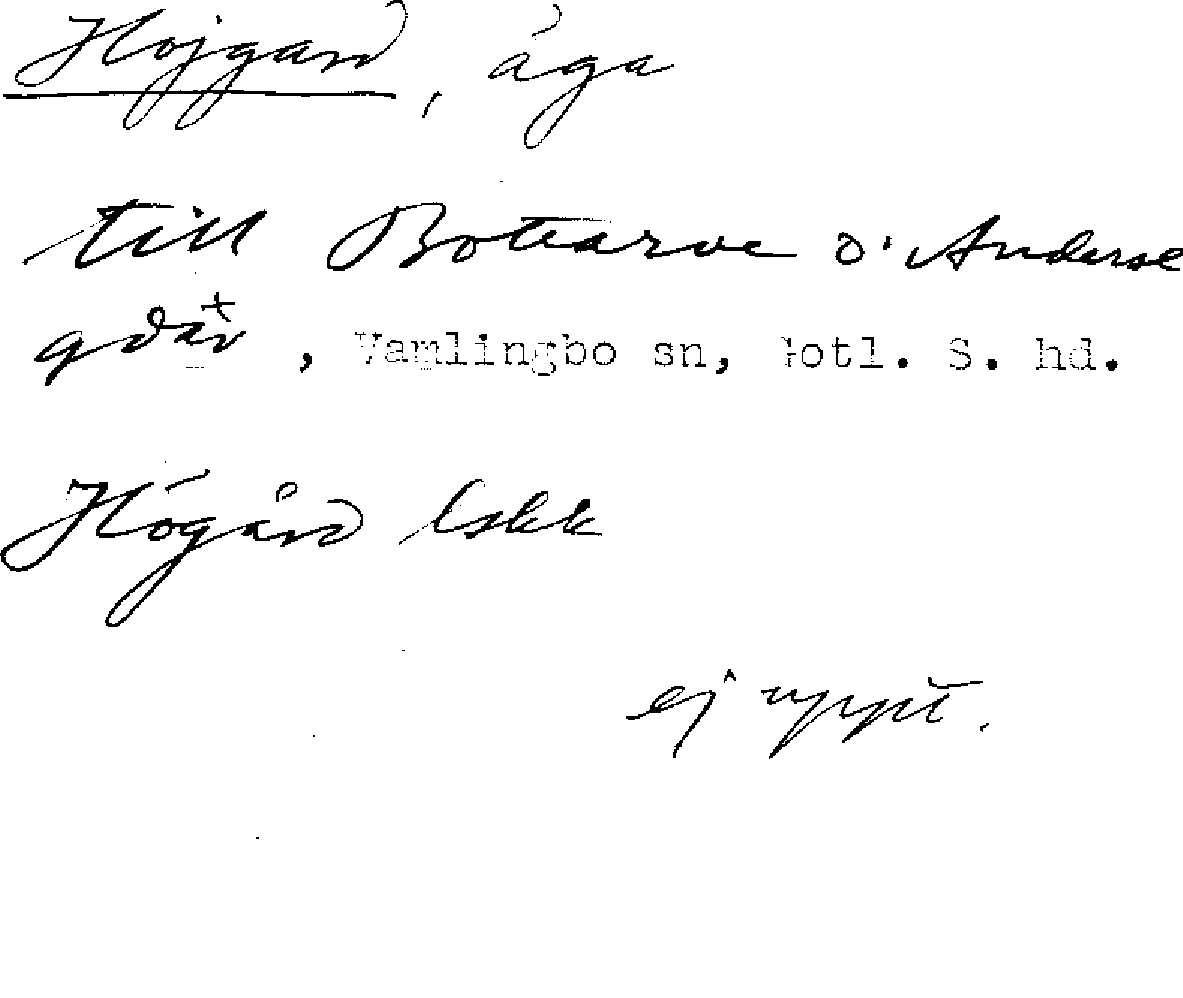 Hojgard, äga
till Botvarve o. Anderse
gdar, Vamlingbo sn, Gotl. S. hd.
Högård Eskk
ej uppt.